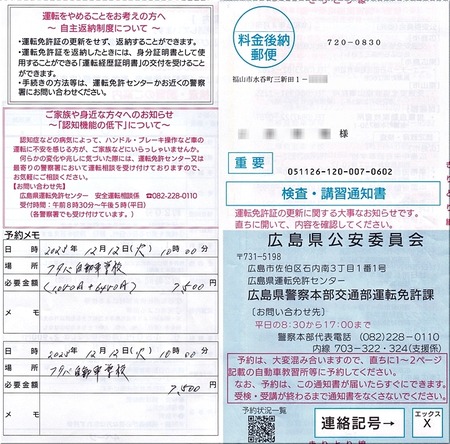 運転をやめることをお考えの方へ
～ 自主返納制度について ～
・運転免許証の更新をせず、返納することができます。
・運転免許証を返納したときには、身分証明書として使用することができる「運転経歴証明書」の交付を受けることができます。
・手続きの方法等は、運転免許センターかお近くの警察署にお問い合わせください。
ご家族や身近な方々へのお知らせ
～「認知機能の低下」について～
認知症などの病気によって、ハンドル・ブレーキ操作など車の運転に不安を感じる方が、ご家族などにいらっしゃいませんか。
何らかの変化や兆しに気づいた際には、運転免許センター又は最寄りの警察署において運転相談を受け付けておりますので、お気軽にご相談ください。
【お問い合わせ先】
広島県運転免許センター 安全運転相談係 ☎082-228-0110
受付時間：午前8時30分～午後5時（平日）
（各警察署でも受け付けています。）
予約メモ
日 時
12月12日(火) 10時00分
場 所
フタバ自動車学校
必要金額
7,500円
メモ
日 時
12月12日(火) 10時00分
場 所
フタバ自動車学校
必要金額
7,500円
メモ
料金後納
郵便
720-0830
福山市水呑町三新田1-
様
重要
051126-120-007-0602
検査・講習通知書
運転免許証の更新に関する大事なお知らせです。
直ちに開いて、内容を確認してください。
広島県公安委員会
〒731-5198
広島市佐伯区石内南3丁目1番1号
広島県運転免許センター
広島県警察本部交通部運転免許課
［お問い合わせ先］
平日の8:30から17:00まで
警察本部代表電話 (082)228-0110
内線 703-322・324(支援係)
予約は、大変混み合いますので、直ちに1～2ページ記載の自動車教習所等に予約してください。
なお、予約は、この通知書が届いたらすぐにできます。
受検・受講が終わるまで通知書をなくさないでください。
予約状況一覧
連絡記号→
エックス
X